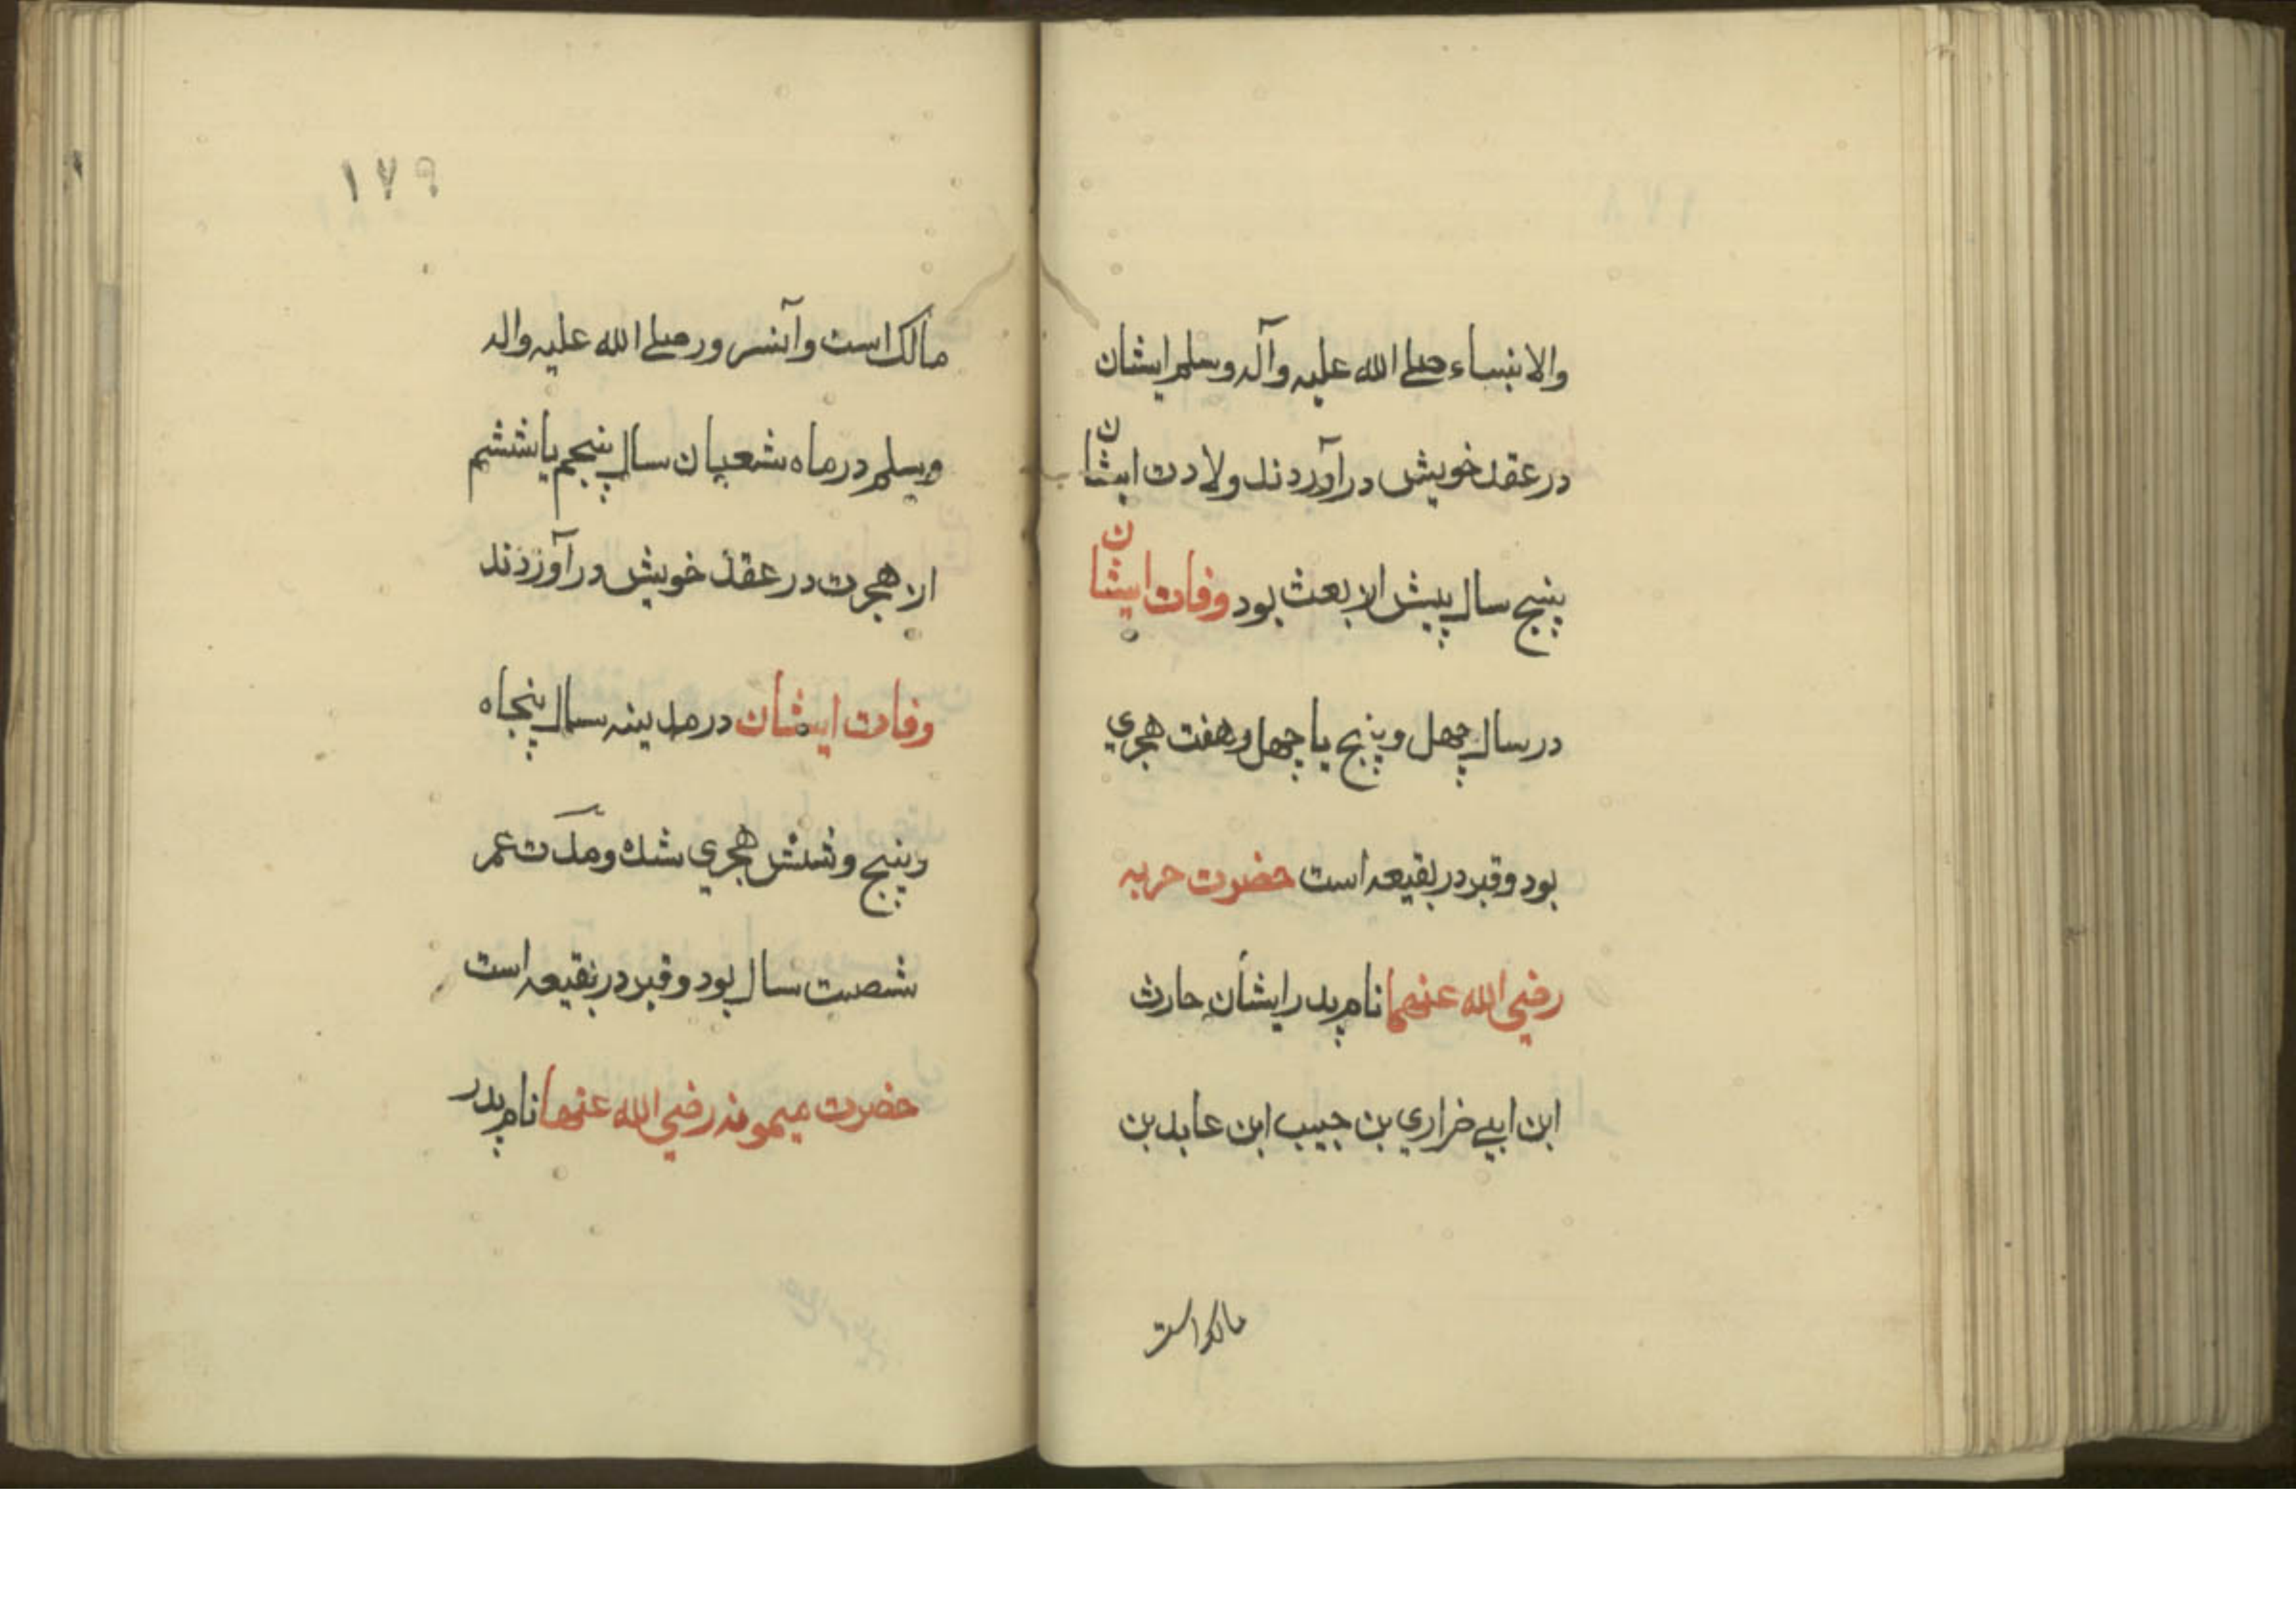 والانبساء صلے الله علیه وآله وسلم ایشان
در عقد خویش در آوردند ولادت ایشان
پنج سال پیش از بعث بود وفات ایشان
در سال چهل و پنج یا چهل و هفت هجري
بود وقبر در بقیعه است حضرت حربه
رضي الله عنها نام پدر ایشان حارث
ابن ابے ضراري بن حبیب ابن عابد بن
مالک است
١٧٩
مالک است وآنسرور صلے الله علیه واله
وسلم در ماه شعبان سال پنجم یا ششم
از هجرت در عقد خویش در آوردند
وفات ایشان در مدینه سال پنجاه
وپنج وشش هجري شد ومدّت عمر
شصت سال بود وقبر در بقیعه است
حضرت میمونه رضي الله عنها نام پدر